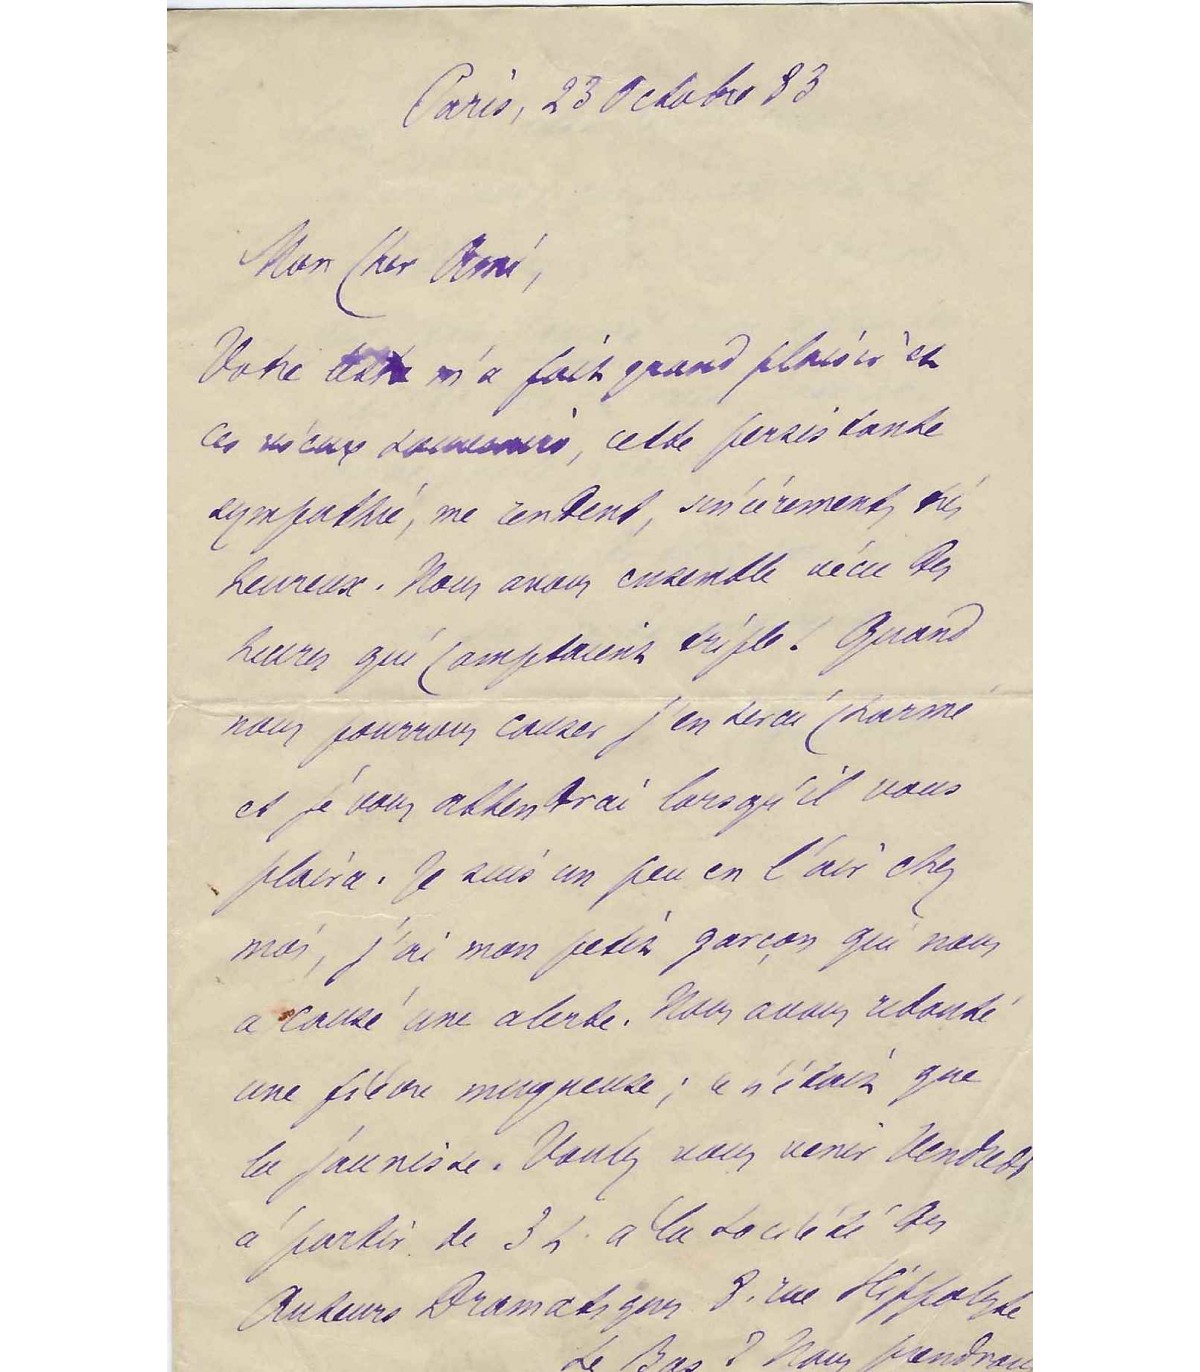 Paris, 23 Octobre 83
Mon Cher Ami,
Votre m'a fait grand plaisir et
ces vieux souvenirs, cette persistante
sympathie, me rendent, sincèrement, très
heureux. Nous avons ensemble vécu des
heures qui comptaient triple. Quand
nous pourrons causer j'en serai charmé
et je vous attendrai lorsqu'il vous
plaira. Je suis un peu en l'air chez
moi, j'ai mon petit garçon qui nous
a causé une alerte. Nous avons redouté
une fièvre muqueuse ; ce n'était que
la jaunisse. Voulez vous venir Vendredi
à partir de 3 h. à la société des
Auteurs Dramatiques 8. rue Hippolyte
Le Bas ? Nous prendrons